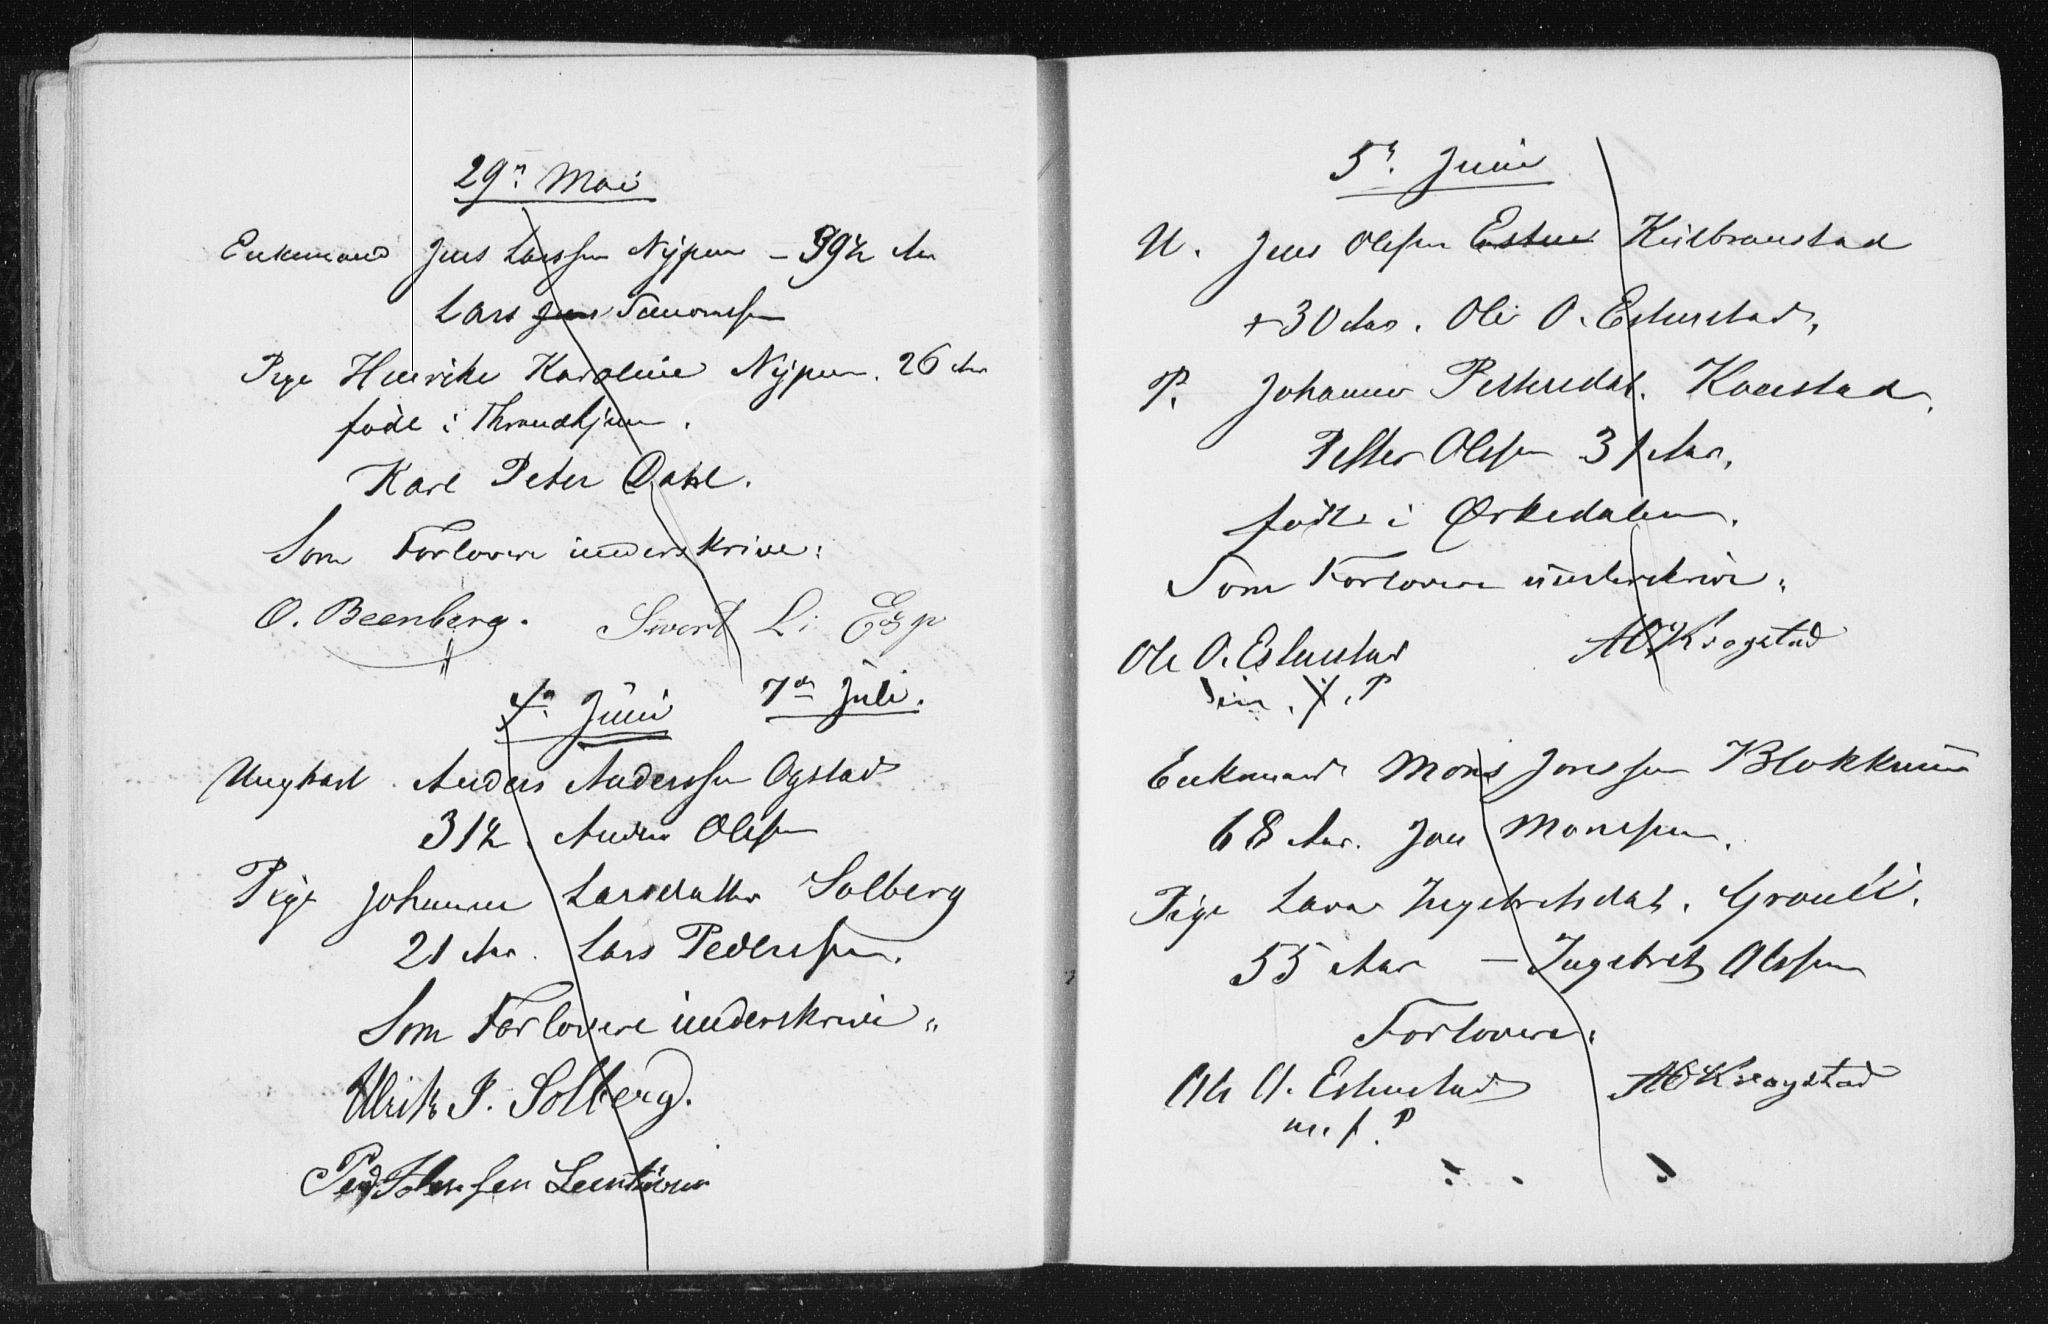 29n Mai
Enkemand Jens Larssen Nypan - 39½ Aar
Lars Jens
Pige Henrike Karoline Nypan. 26 Aar
født i Throndhjem.
Karl Peter Dahl.
Som Forlovere underskrive:
O. Beenberg. Sivert Li Esp
4n Juni 7de Juli.
Ungkarl Anders Anderssen Ogstad
31½ Anders Olssen
Pige Johanna Larsdatter Solberg
21 Aar. Lars Pederssen.
Som Forlovere underskrive:
Ulrik P. Solberg.
5n Juni
U. Jens Olssen
+30 Aar. Ole O. Estenstad,
P. Johanna Pettersdat.
Petter Olssen 31 Aar,
født i Ørkedalen.
Som Forlovere underskrive:
Ole O. Estenstad AO Krogstad
Enkemand Mons Jonssen Blokkum
68 Aar. Jon Monssen.
Pige Lava Ingebretsdat.
55 Aar - Ingebret Olssen
Forlovere:
Ole O. Estenstad AO Krogstad
m. f. P